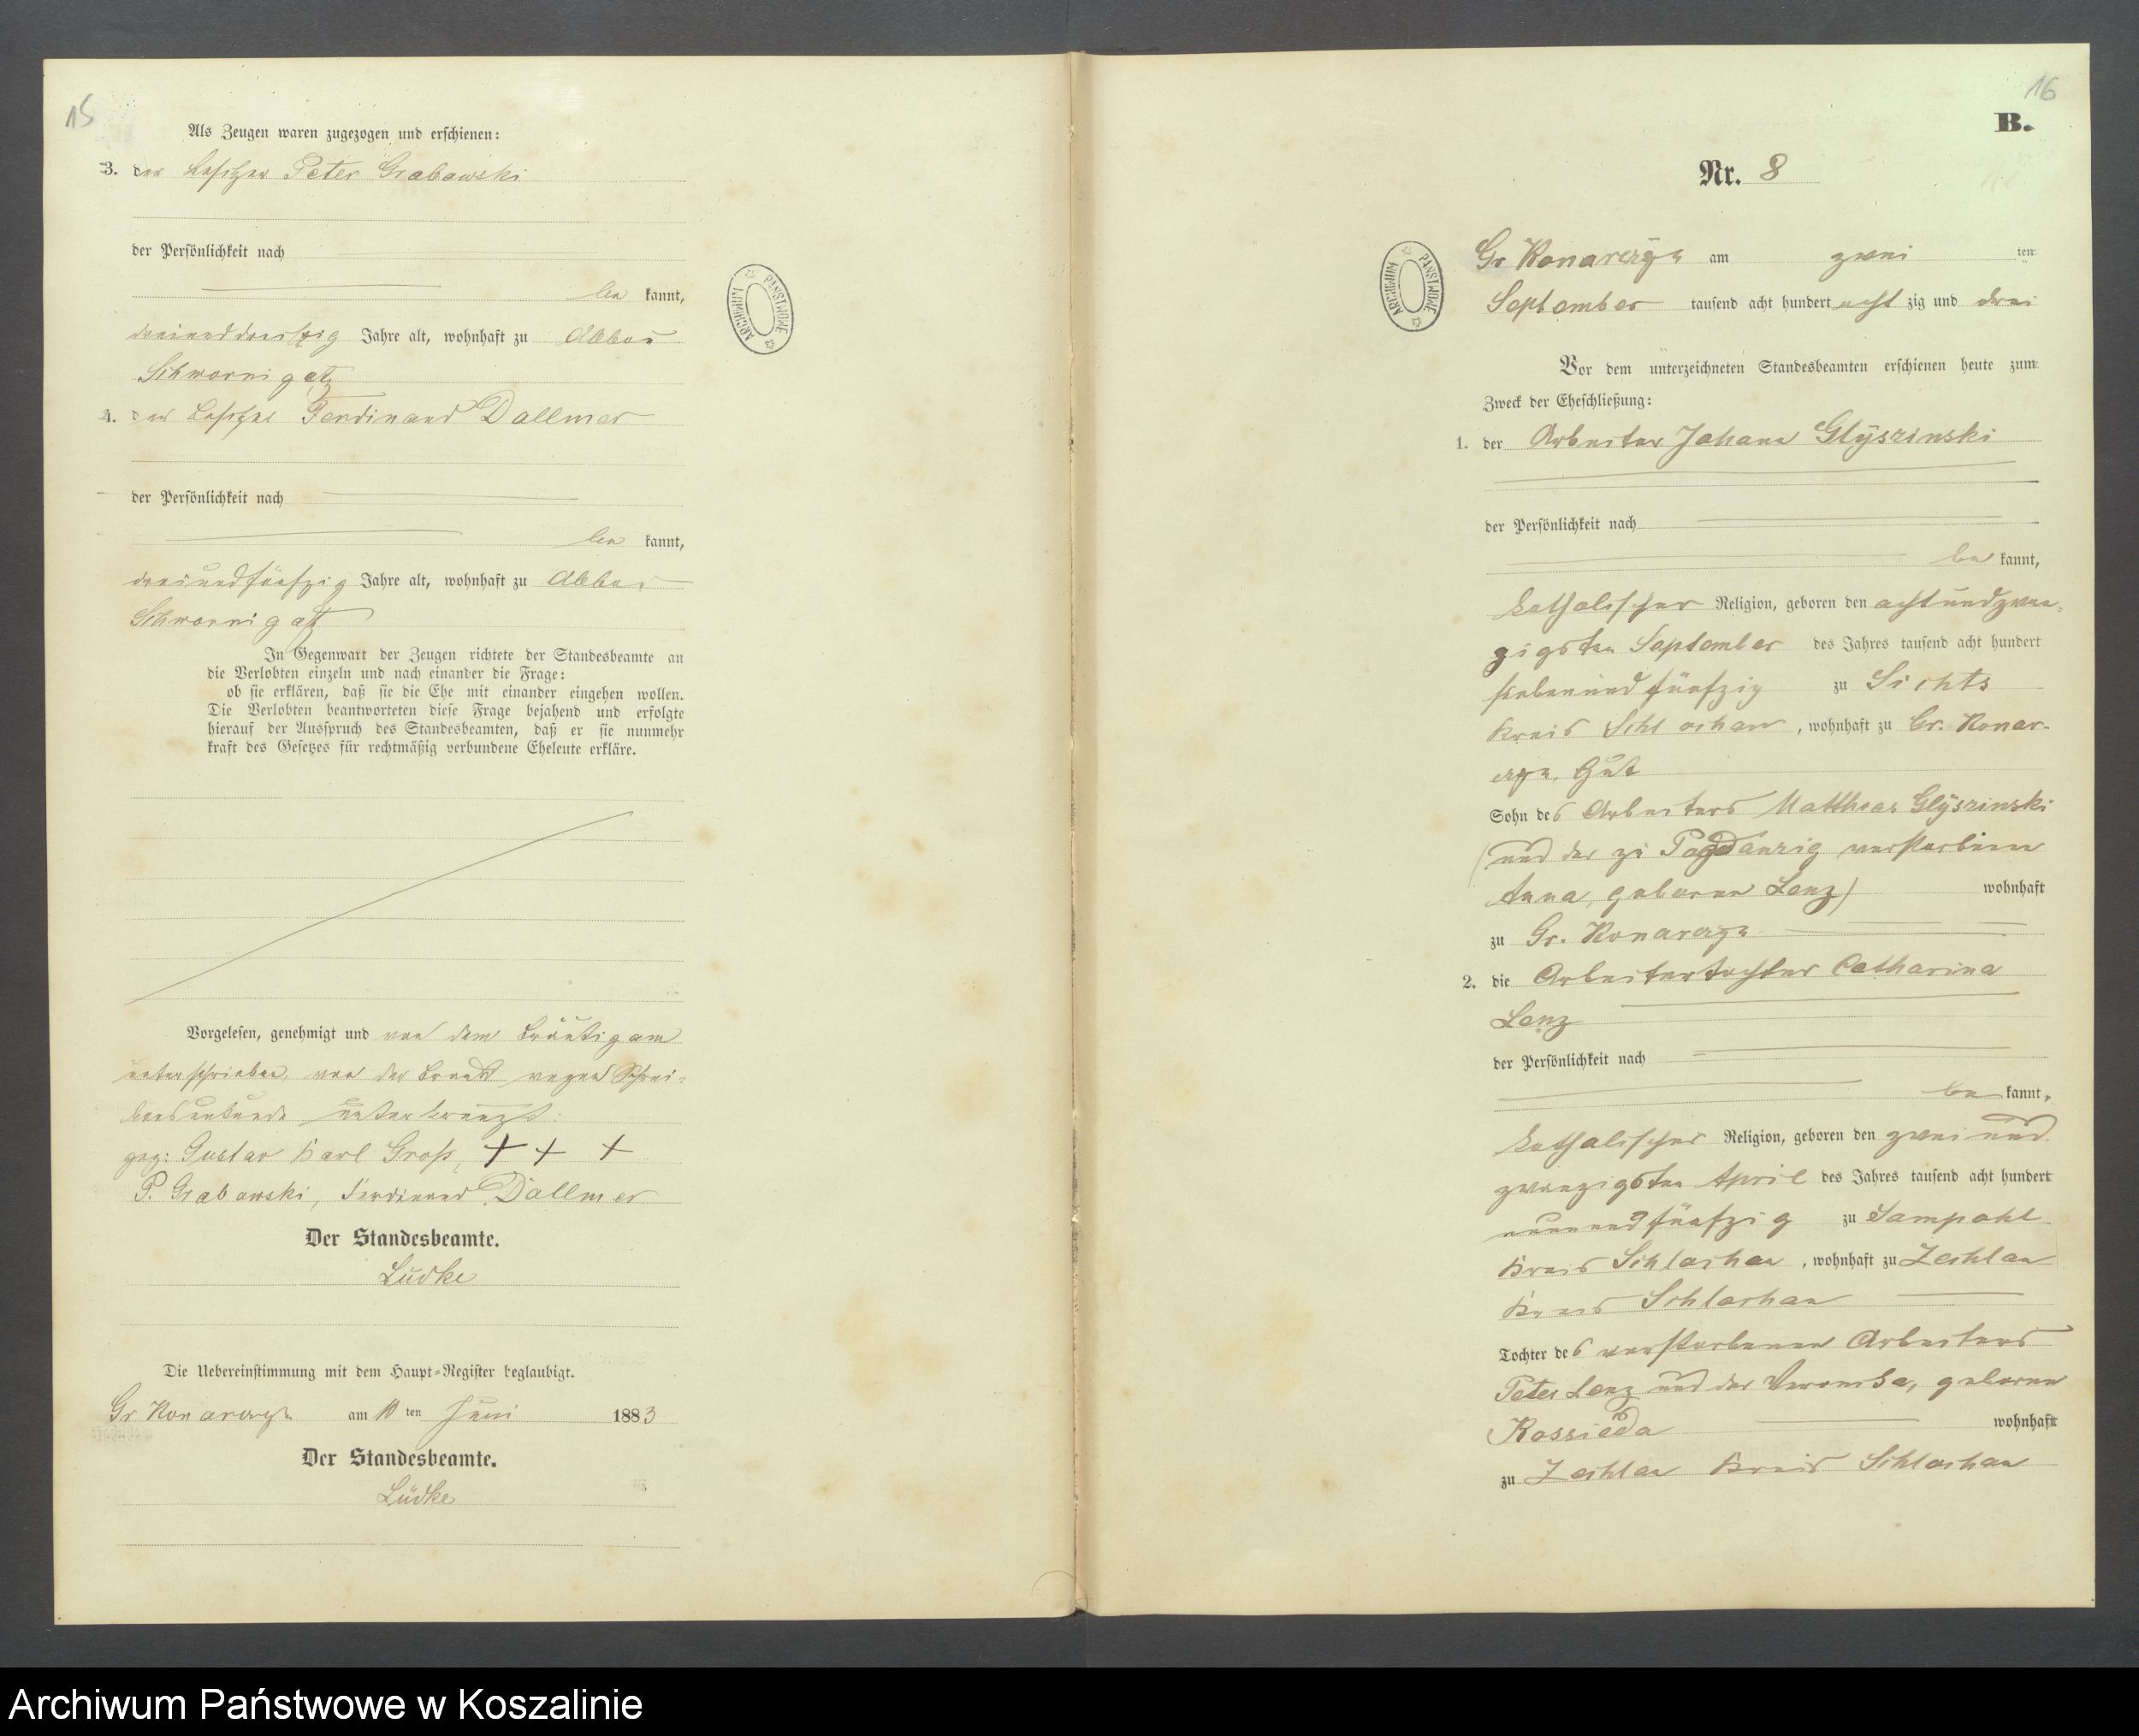 15
Als Zeugen waren zugezogen und erschienen:
3. der Besitzer Peter Grabowski
der Persönlichkeit nach
be kannt,
dreiunddreißig Jahre alt, wohnhaft zu Abbau
Schwornigatz
4. der Besitzer Ferdinand Dallmer
der Persönlichkeit nach
be kannt,
dreiundfünfzig Jahre alt, wohnhaft zu Abbau
Schwornigatz
In Gegenwart der Zeugen richtete der Standesbeamte an
die Verlobten einzeln und nach einander die Frage:
ob sie erklären, daß sie die Ehe mit einander eingehen wollen.
Die Verlobten beantworteten diese Frage bejahend und erfolgte
hierauf der Ausspruch des Standesbeamten, daß er sie nunmehr
kraft des Gesetzes für rechtmäßig verbundene Eheleute erkläre.
Vorgelesen, genehmigt und von dem Bräutigam
unterschrieben, von der Braut wegen Schrei-
bensunkunde unterkreuzt:
gez: Gustav Karl Groß, + + +
P. Grabowski, Ferdinand Dallmer
Der Standesbeamte.
Lüdke
Die Uebereinstimmung mit dem Haupt-Register beglaubigt.
Gr Konarczyn am 10 ten Juni 1883
Der Standesbeamte.
Lüdke
16
B.
Nr. 8
Gr Konarczyn am zwei ten
September tausend acht hundert acht zig und drei
Vor dem unterzeichneten Standesbeamten erschienen heute zum
Zweck der Eheschließung:
1. der Arbeiter Johann Glyszinski
der Persönlichkeit nach
be kannt,
katholischer Religion, geboren den achtundzwan-
zigsten September des Jahres tausend acht hundert
siebenundfünfzig zu Sichts
Kreis Schlochau, wohnhaft zu Gr. Konar-
czyn, Gut
Sohn des Arbeiters Matthias Glyszinski
(und der zu Pagdanzig verstorbenen
Anna, geborne Lenz) wohnhaft
zu Gr. Konarczyn
2. die Arbeitertochter Catharina
Lenz
der Persönlichkeit nach
be kannt,
katholischer Religion, geboren den zweiund
zwanzigsten April des Jahres tausend acht hundert
neunundfünfzig zu Sampohl
Kreis Schlochau, wohnhaft zu Zechlau
Kreis Schlochau
Tochter des verstorbenen Arbeiters
Peter Lenz und der Veronika, geborne
Kossieda wohnhaft
zu Zechlau Kreis Schlochau
ARCHIWUM PAŃSTWOWE
ARCHIWUM PAŃSTWOWE
Archiwum Państwowe w Koszalinie